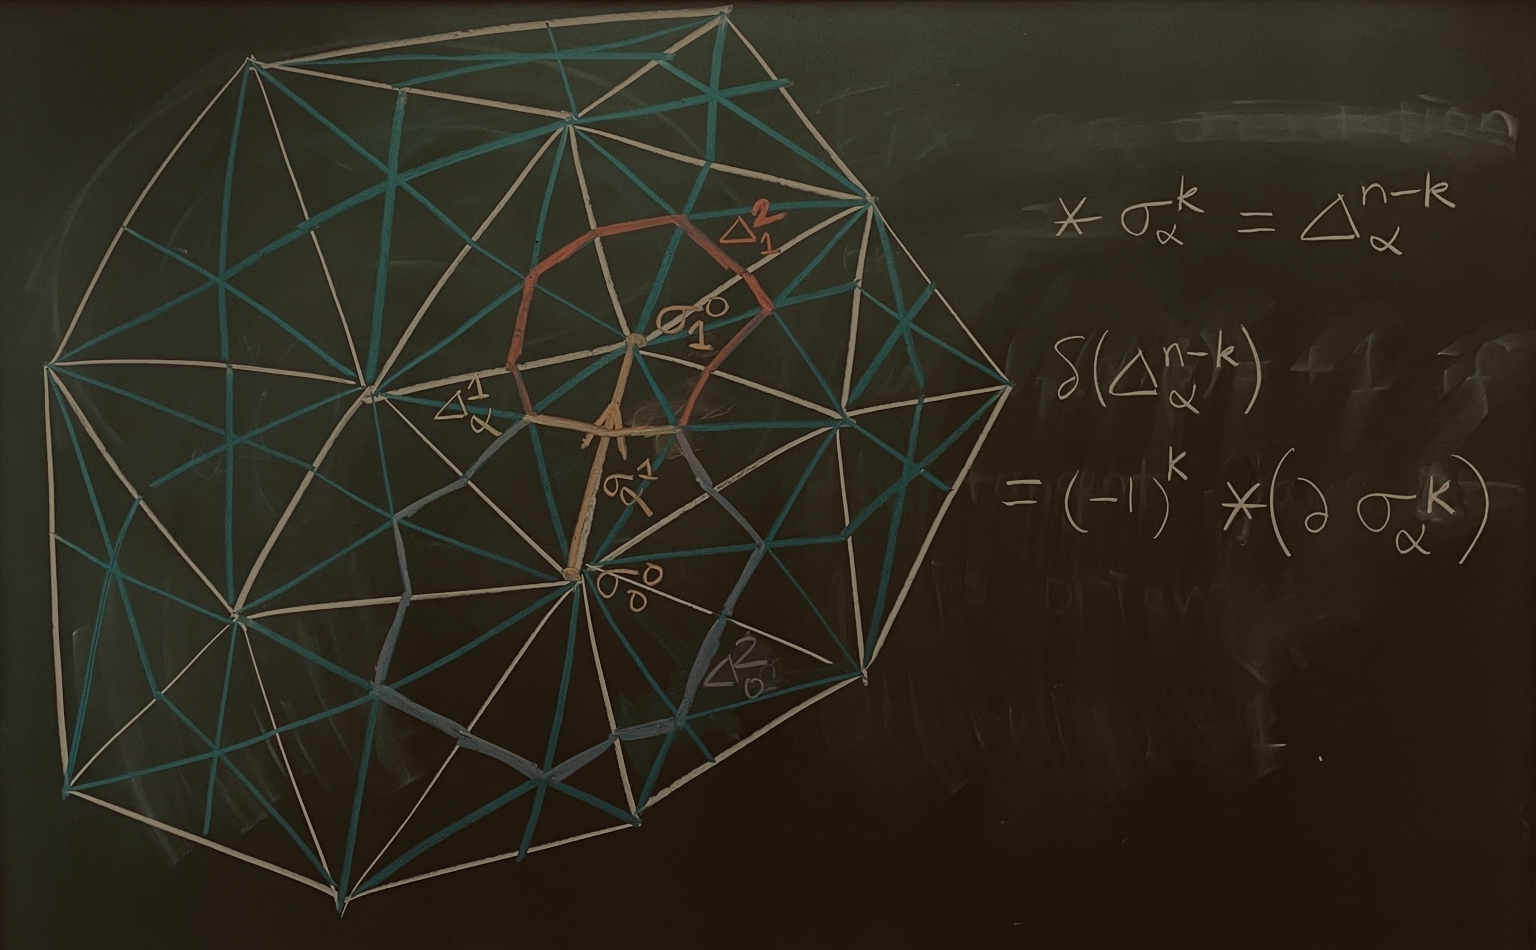 Δ₁²
σ₁⁰
Δ_α¹
σ_α¹
σ₀⁰
Δ₀²
* σ_α^k = Δ_α^{n-k}
δ(Δ_α^{n-k})
= (-1)^k *(∂ σ_α^k)